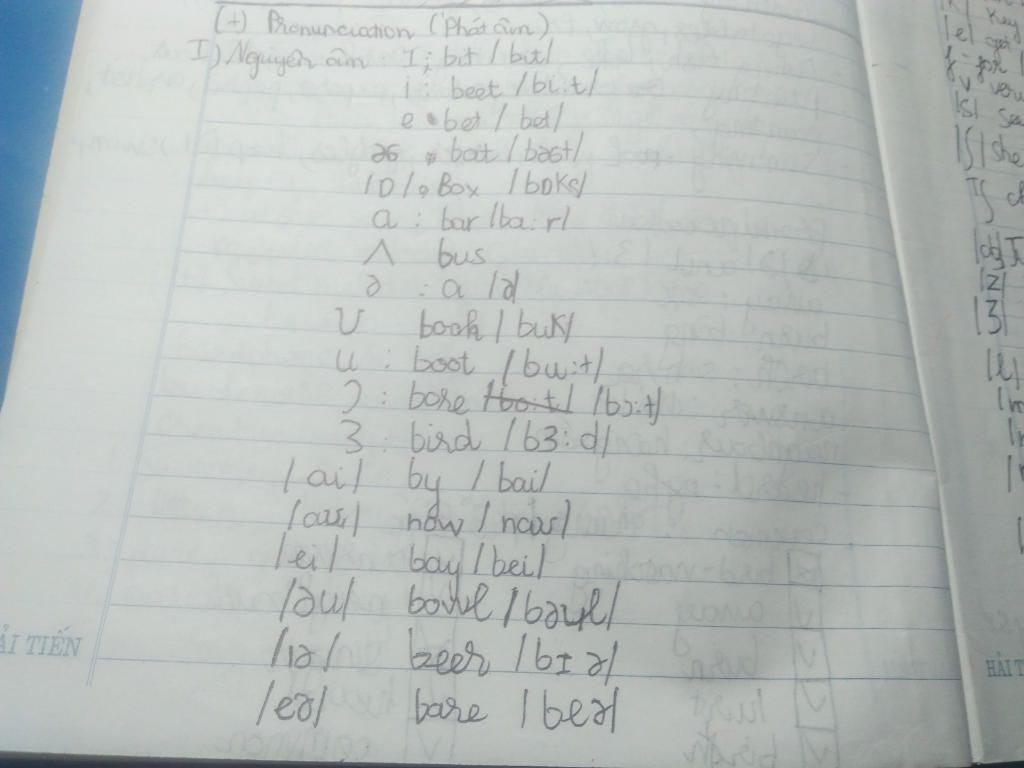 (+) Pronunciation (Phát âm)
I) Nguyên âm: I: bit /bit/
i: beet /bi:t/
e: bet /bet/
æ: bat /bæt/
/ɒ/: Box /bɒks/
a: bar /ba:r/
ʌ bus
ə: a /ə/
ʊ book /buk/
u: boot /bu:t/
ɔ: bore /bɔ:t/
ɜ: bird /bɜ:d/
/ai/ by /bai/
/au/ now /nau/
/ei/ bay /bei/
/əu/ bowl /bəul/
/ɪə/ beer /bɪə/
/eə/ bare /beə/
ẢI TIẾN
Key
/e/ get
f for
v
/s/
/ʃ/ she
Tʃ ch
/dʒ/
/z/
/ʒ/
HẢI T